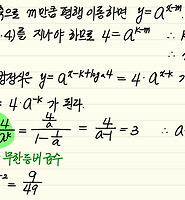 으로 m만큼 평행 이동하면 y = a^{x-m
4)를 지나야 하므로 4 = a^{k-m} ∴ k
∴
방정식은 y = a^{x-k+log_a 4} = 4·a^{x-k} 가
= 4·a^{-k} 가 된다.
\frac{4}{a^k} = \frac{\frac{4}{a}}{1-\frac{1}{a}} = \frac{4}{a-1} = 3 ∴ a
무한등비급수
^{-2} = \frac{9}{49}